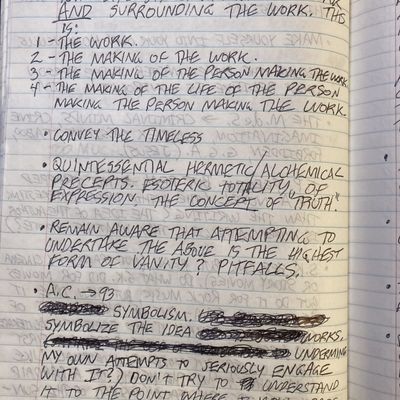 AND SURROUNDING THE WORK. THIS
IS:
1 - THE WORK.
2 - THE MAKING OF THE WORK.
3 - THE MAKING OF THE PERSON MAKING THE WORK
4 - THE MAKING OF THE LIFE OF THE PERSON
MAKING THE PERSON MAKING THE WORK.
• CONVEY THE TIMELESS
• QUINTESSENTIAL HERMETIC/ALCHEMICAL
PRECEPTS. ESOTERIC TOTALITY OF
EXPRESSION. THE CONCEPT OF "TRUTH."
• REMAIN AWARE THAT ATTEMPTING TO
UNDERTAKE THE ABOVE IS THE HIGHEST
FORM OF VANITY? PITFALLS.
• A.C. → 93
SYMBOLISM.
SYMBOLIZE THE IDEA WORKS,
UNDERMINE
MY OWN ATTEMPTS TO SERIOUSLY ENGAGE
WITH IT?) DON'T TRY TO UNDERSTAND
IT TO THE POINT WHERE